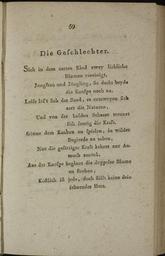 69
Die Geschlechter.
Sieh in dem zarten Kind zwey liebliche
Blumen vereinigt,
Jungfrau und Jüngling, sie deckt beyde
die Knospe noch zu.
Leise lös't sich das Band, es entzweyen sich
zart die Naturen,
Und von der holden Schaam trennet
sich feurig die Kraft.
Gönne dem Knaben zu spielen, in wilder
Begierde zu toben,
Nur die gesättigte Kraft kehret zur An-
muth zurück.
Aus der Knospe beginnt die doppelte Blume
zu streben,
Köstlich ist jede, doch stillt keine dein
sehnendes Herz.